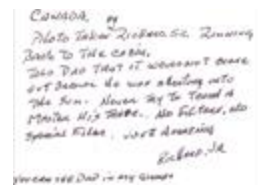 CANADA, by
Photo Taken Richard, Sr. Running
Back to The cabin.
Told Dad That it wouldn't come
out Because He was shooting into
The Sun. Never Try to Teach a
Master His Trade. No Filters, No
Special Film. Just Amazing
Richard, Jr.
you can see Dad in my Glasses